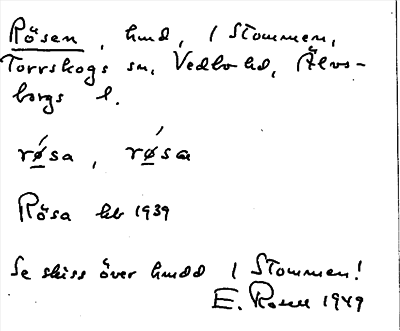 Rösen, hmd, 1 Stommen,
Torrskogs sn, Vedbo hd, Älvs-
borgs l.
rǿsa, rǿsa
Rösa hb 1939
Se skiss över hmdd 1 Stommen!
E. Rosell 1949